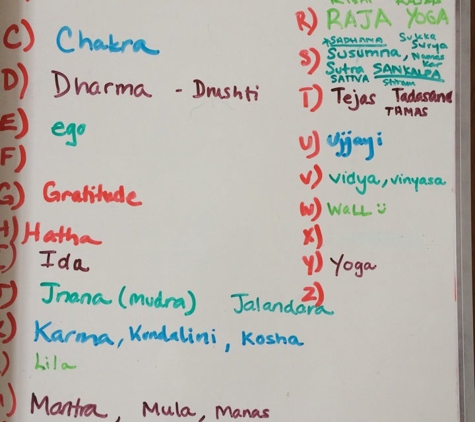 C) Chakra
D) Dharma - Drushti
E) ego
F)
G) Gratitude
H) Hatha
Ida
Jnana (mudra) Jalandara
Karma, Kundalini, Kosha
Lila
Mantra, Mula, Manas
R) RAJA YOGA
SADHANA Sukha Surya
S) Susumna, Namas
Kar
Sutra SANKALPA
SATTVA
T) Tejas Tadasana
TAMAS
U) Ujjayi
V) vidya, vinyasa
W) WALL
X)
Y) Yoga
Z)